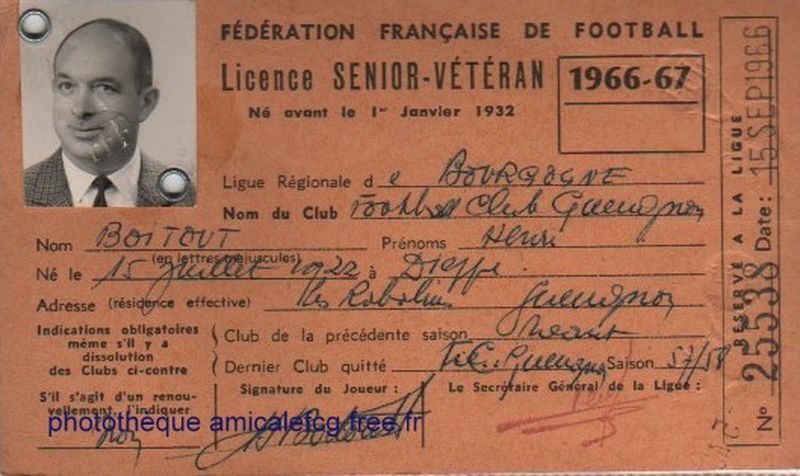 FÉDÉRATION FRANÇAISE DE FOOTBALL
Licence SENIOR-VÉTÉRAN
1966-67
Né avant le 1er Janvier 1932
Ligue Régionale de BOURGOGNE
Nom du Club Football Club Gueugnon
Nom BOITOUT Prénoms Henri
(en lettres majuscules)
Né le 15 Juillet 1922 à Dieppe.
Adresse (résidence effective) les Gueugnon
Indications obligatoires
même s'il y a
dissolution
des Clubs ci-contre
Club de la précédente saison Néant
Dernier Club quitté F.C. Gueugnon Saison 57/58
S'il s'agit d'un renou-
vellement, l'indiquer
non
Signature du Joueur :
Le Secrétaire Général de la Ligue :
RÉSERVÉ A LA LIGUE
N° 25538 Date: 15 SEP 1966
phototheque amicalefcg.free.fr